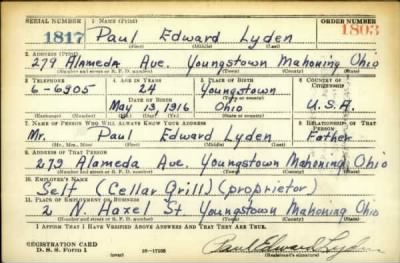 SERIAL NUMBER 1. NAME (Print) ORDER NUMBER
1817 Paul Edward Lyden 1803
(First) (Middle) (Last)
2. ADDRESS (Print)
279 Alameda Ave. Youngstown Mahoning Ohio
(Number and street or R. F. D. number) (Town) (County) (State)
3. TELEPHONE 4. AGE IN YEARS 5. PLACE OF BIRTH 6. COUNTRY OF CITIZENSHIP
6-6905 24 Youngstown
DATE OF BIRTH (Town or county)
May 13, 1916 Ohio U.S.A.
(Exchange) (Number) (Mo.) (Day) (Yr.) (State or country)
7. NAME OF PERSON WHO WILL ALWAYS KNOW YOUR ADDRESS 8. RELATIONSHIP OF THAT PERSON
Mr. Paul Edward Lyden Father
(Mr., Mrs., Miss) (First) (Middle) (Last)
9. ADDRESS OF THAT PERSON
279 Alameda Ave. Youngstown Mahoning Ohio
(Number and street or R. F. D. number) (Town) (County) (State)
10. EMPLOYER'S NAME
Self (Cellar Grill) (proprietor)
11. PLACE OF EMPLOYMENT OR BUSINESS
2 N. Hazel St. Youngstown Mahoning Ohio
(Number and street or R. F. D. number) (Town) (County) (State)
I AFFIRM THAT I HAVE VERIFIED ABOVE ANSWERS AND THAT THEY ARE TRUE.
REGISTRATION CARD
D. S. S. Form 1 Paul Edward Lyden
(Registrant's signature)